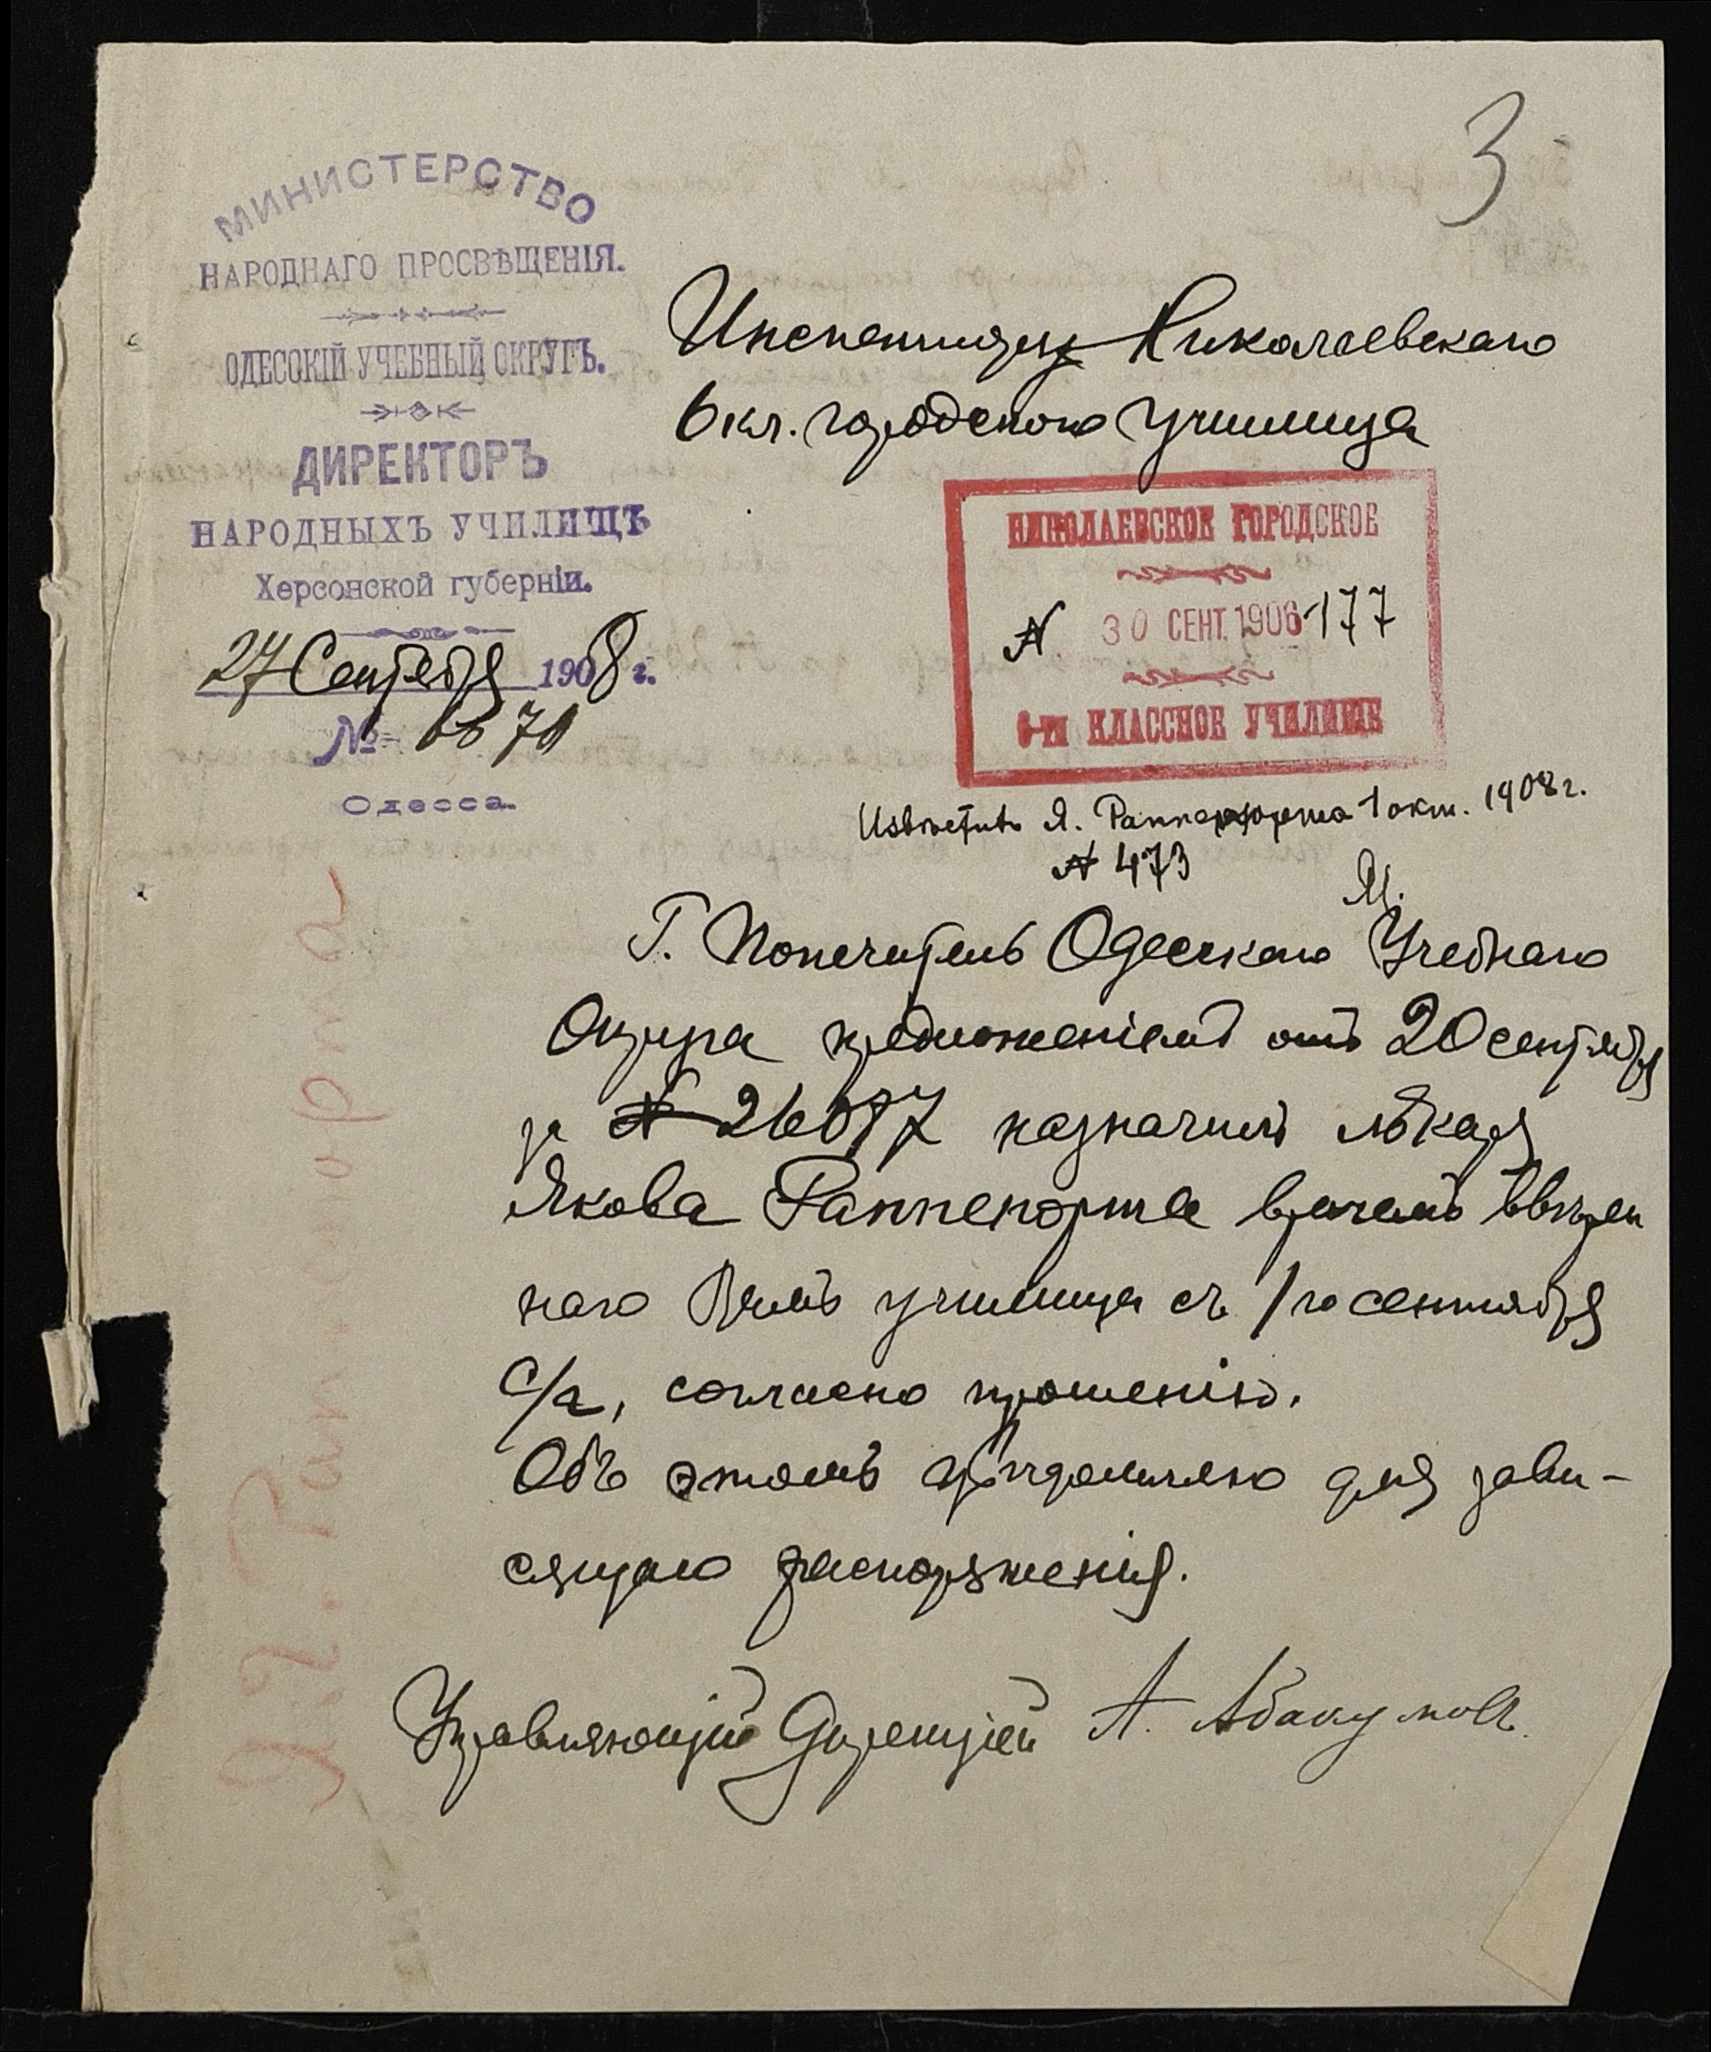 3
МИНИСТЕРСТВО
НАРОДНАГО ПРОСВѢЩЕНІЯ.
ОДЕССКІЙ УЧЕБНЫЙ ОКРУГЪ.
ДИРЕКТОРЪ
НАРОДНЫХЪ УЧИЛИЩЪ
Херсонской губерніи.
27 Сентября 1908 г.
№
Одесса.
Инспектору Николаевскаго
6 кл. городского училища
НИКОЛАЕВСКОЕ ГОРОДСКОЕ
№ 30 СЕНТ. 1908 177
6-ти КЛАССНОЕ УЧИЛИЩЕ
Извѣстить Я. Раппопорта 1 окт. 1908 г.
№ 473
Г. Попечитель Одесскаго Учебнаго
Округа предложеніемъ отъ 20 сентября
за № назначилъ лѣкаря
Якова Раппепорта врачемъ ввѣрен
наго Вамъ училища съ 1го сентября
с/г, согласно прошенію.
Объ этомъ увѣдомляю для зави-
сящаго распоряженія.
Управляющій Дирекціей А. Абакумовъ.
Я. Раппопорта